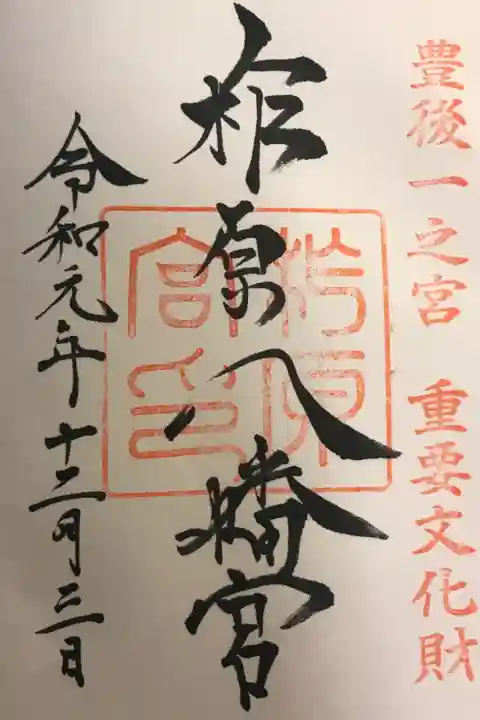 豊後一之宮 重要文化財
柞原八幡宮
柞原宮印
令和元年十二月三日